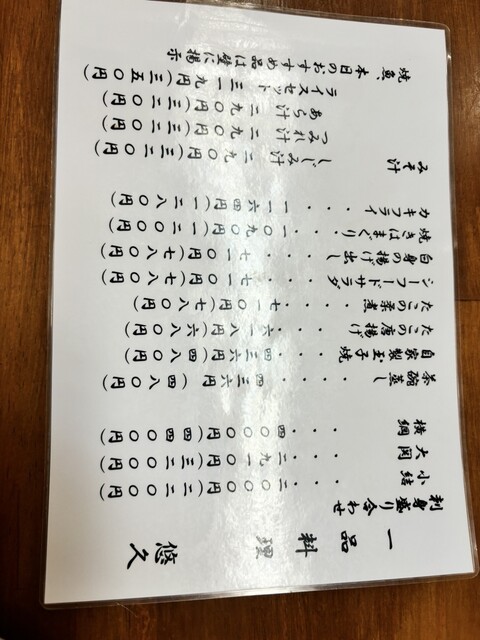 一品料理 悠久
刺身盛り合わせ
小結・・・二〇〇〇円(二二〇〇円)
大関・・・二九一〇円(三二〇〇円)
横綱・・・四〇〇〇円(四四〇〇円)
茶碗蒸し・・・・四三六円(四八〇円)
自家製玉子焼・・・四三六円(四八〇円)
たこの唐揚げ・・・六一八円(六八〇円)
たこの柔煮・・・・七一〇円(七八〇円)
シーフードサラダ・・・七一〇円(七八〇円)
白身の揚げ出し・・・七一〇円(七八〇円)
焼きはまぐり・・・一〇九〇円(一二〇〇円)
カキフライ・・・一一六四円(一二八〇円)
みそ汁
しじみ汁 二九〇円(三二〇円)
つみれ汁 二九〇円(三二〇円)
あら汁 二九〇円(三二〇円)
ライスセット 三一九円(三五〇円)
焼魚、本日のおすすめ品は壁に掲示